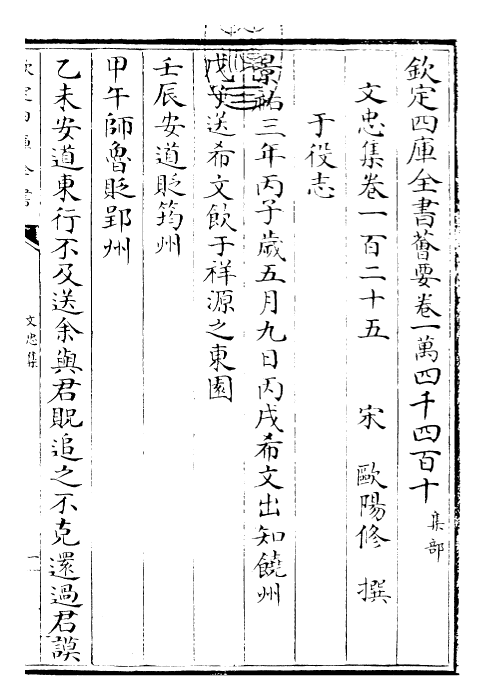 欽定四庫全書薈要卷一萬四千四百十 集部
文忠集卷一百二十五 宋 歐陽修 撰
于役志
景祐三年丙子歲五月九日丙戌希文出知饒州
戊子送希文飲于祥源之東園
壬辰安道貶筠州
甲午師魯貶郢州
乙未安道東行不及送余與君貺追之不克還過君謨
欽定四庫全書
文忠集
一